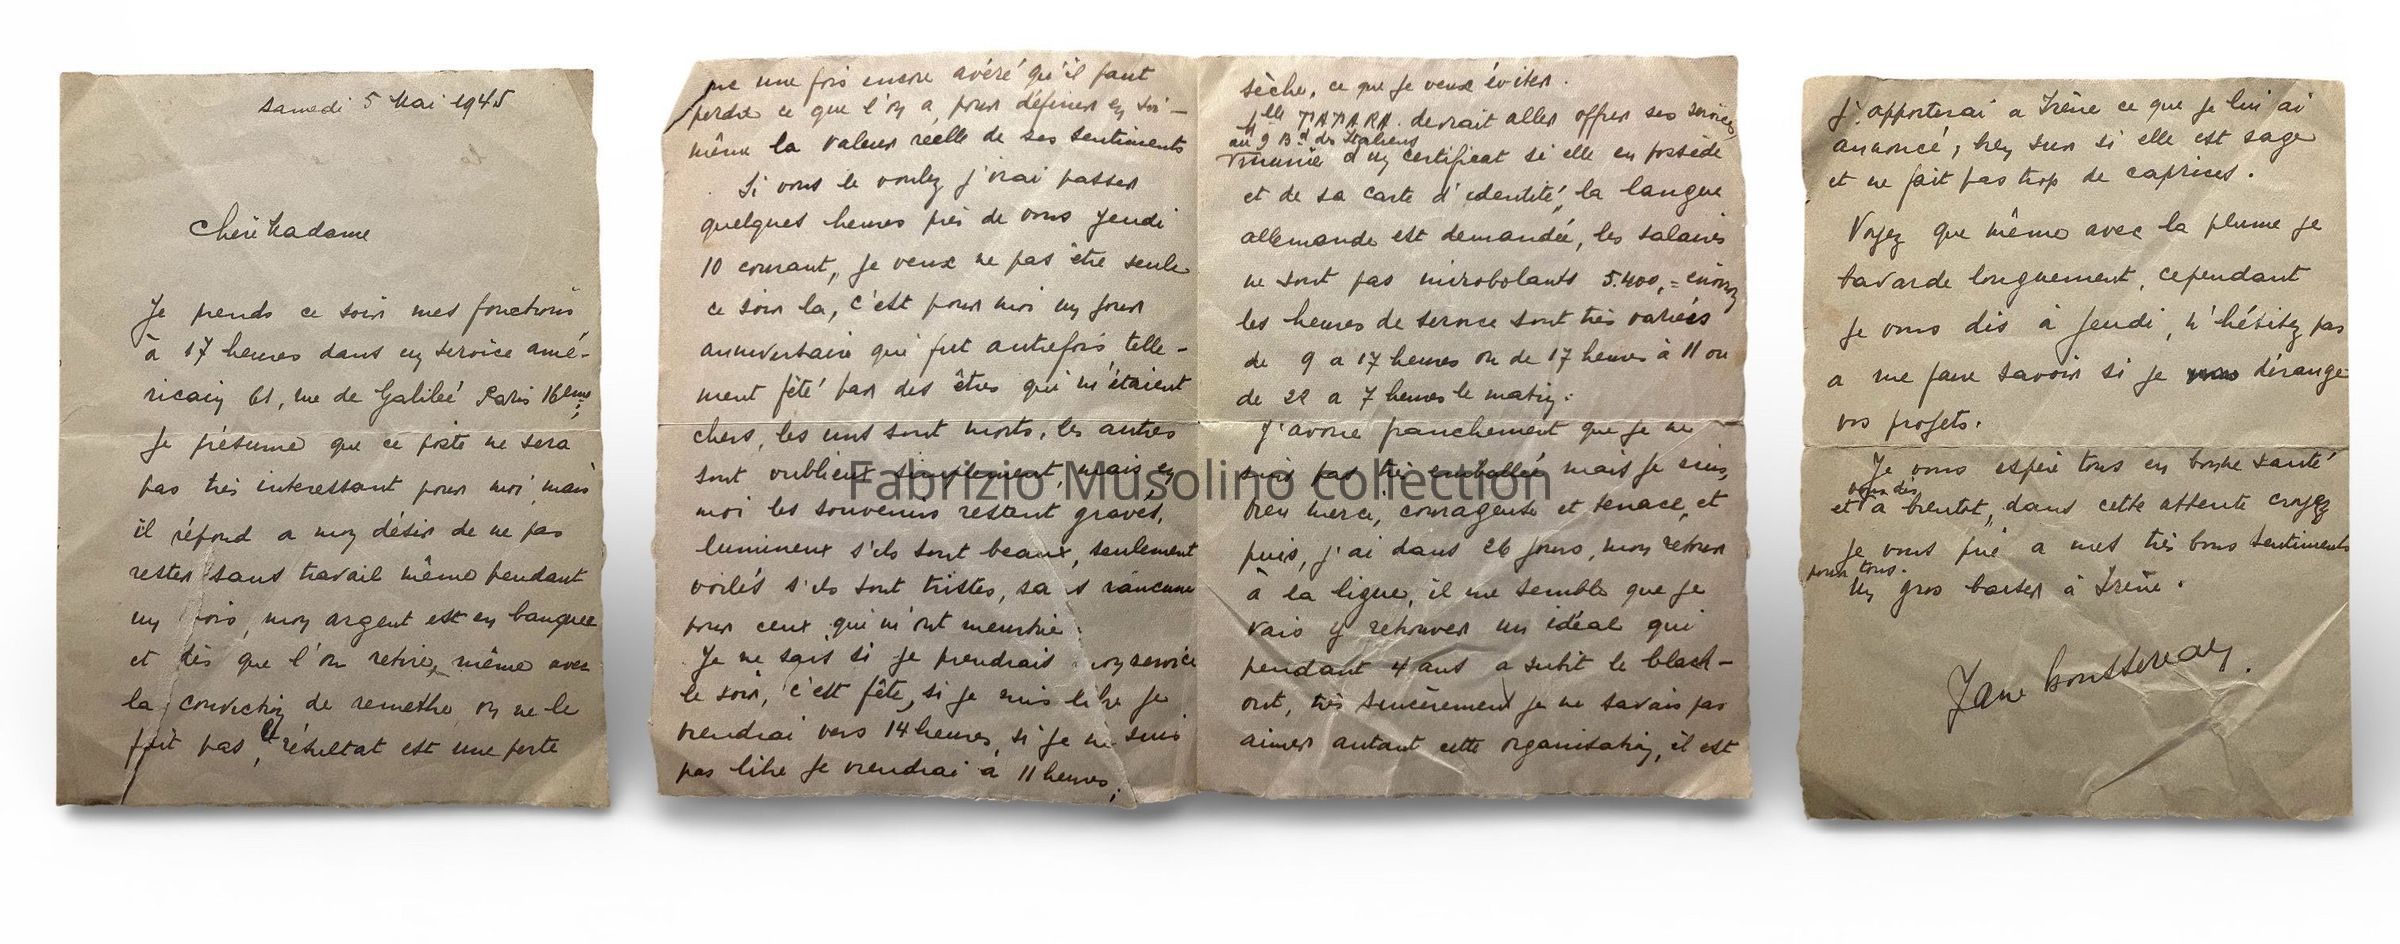 samedi 5 Mai 1945
Chère Madame
Je prends ce soir mes fonctions
à 17 heures dans un service amé-
ricain 61, rue de Galilée Paris 16eme;
Je présume que ce poste ne sera
pas très interessant pour moi mais
il répond a mon désir de ne pas
rester sans travail même pendant
un mois, mon argent est en banque
et dès que l'on retire, même avec
la conviction de remettre on ne le
fait pas, le résultat est une perte
sèche, ce que je veux éviter.
Melle TATARA. devrait aller offrir ses services
au 9 Bd des Italiens
munie d'un certificat si elle en possède
et de sa carte d'identité, la langue
allemande est demandée, les salaires
ne sont pas mirobolants 5.400,= environ
les heures de service sont très variées
de 9 a 17 heures ou de 17 heures à 11 ou
de 22 a 7 heures le matin.
J'avoue franchement que je ne
suis pas très emballée mais je suis,
Dieu merci, courageuse et tenace, et
puis, j'ai dans 26 jours, mon retour
à la ligue, il me semble que je
vais y retrouver un idéal qui
pendant 4 ans a subit le black-
out, très sincèrement je ne savais pas
aimer autant cette organisation, il est
me une fois encore avéré qu'il faut
perdre ce que l'on a, pour définir en soi-
même la valeur réelle de ses sentiments
Si vous le voulez j'irai passer
quelques heures près de vous Jeudi
10 courant, je veux ne pas être seule
ce soir la, c'est pour moi un jour
anniversaire qui fut autrefois telle-
ment fêté par des êtres qui m'étaient
chers, les uns sont morts, les autres
sont oublient simplement, mais en
moi les souvenirs restent gravés,
lumineux s'ils sont beaux, seulement
voilés s'ils sont tristes, sa s rancune
pour ceux qui m'ont meurtrie
Je ne sais si je prendrais mon service
le soir, c'est fête, si je suis libre je
viendrai vers 14 heures, si je ne suis
pas libre je viendrai à 11 heures;
J'apporterai a Irène ce que je lui ai
annoncé, bien sur si elle est sage
et ne fait pas trop de caprices.
Voyez que même avec la plume je
bavarde longuement, cependant
je vous dis à Jeudi, n'hésitez pas
a me faire savoir si je dérange
vos projets.
Je vous espère tous en bonne santé
vous dis
et a bientot, dans cette attente croyez
je vous prie a mes très bons sentiments
pour tous.
Un gros baiser à Irène.
Jane
Fabrizio Musolino collection